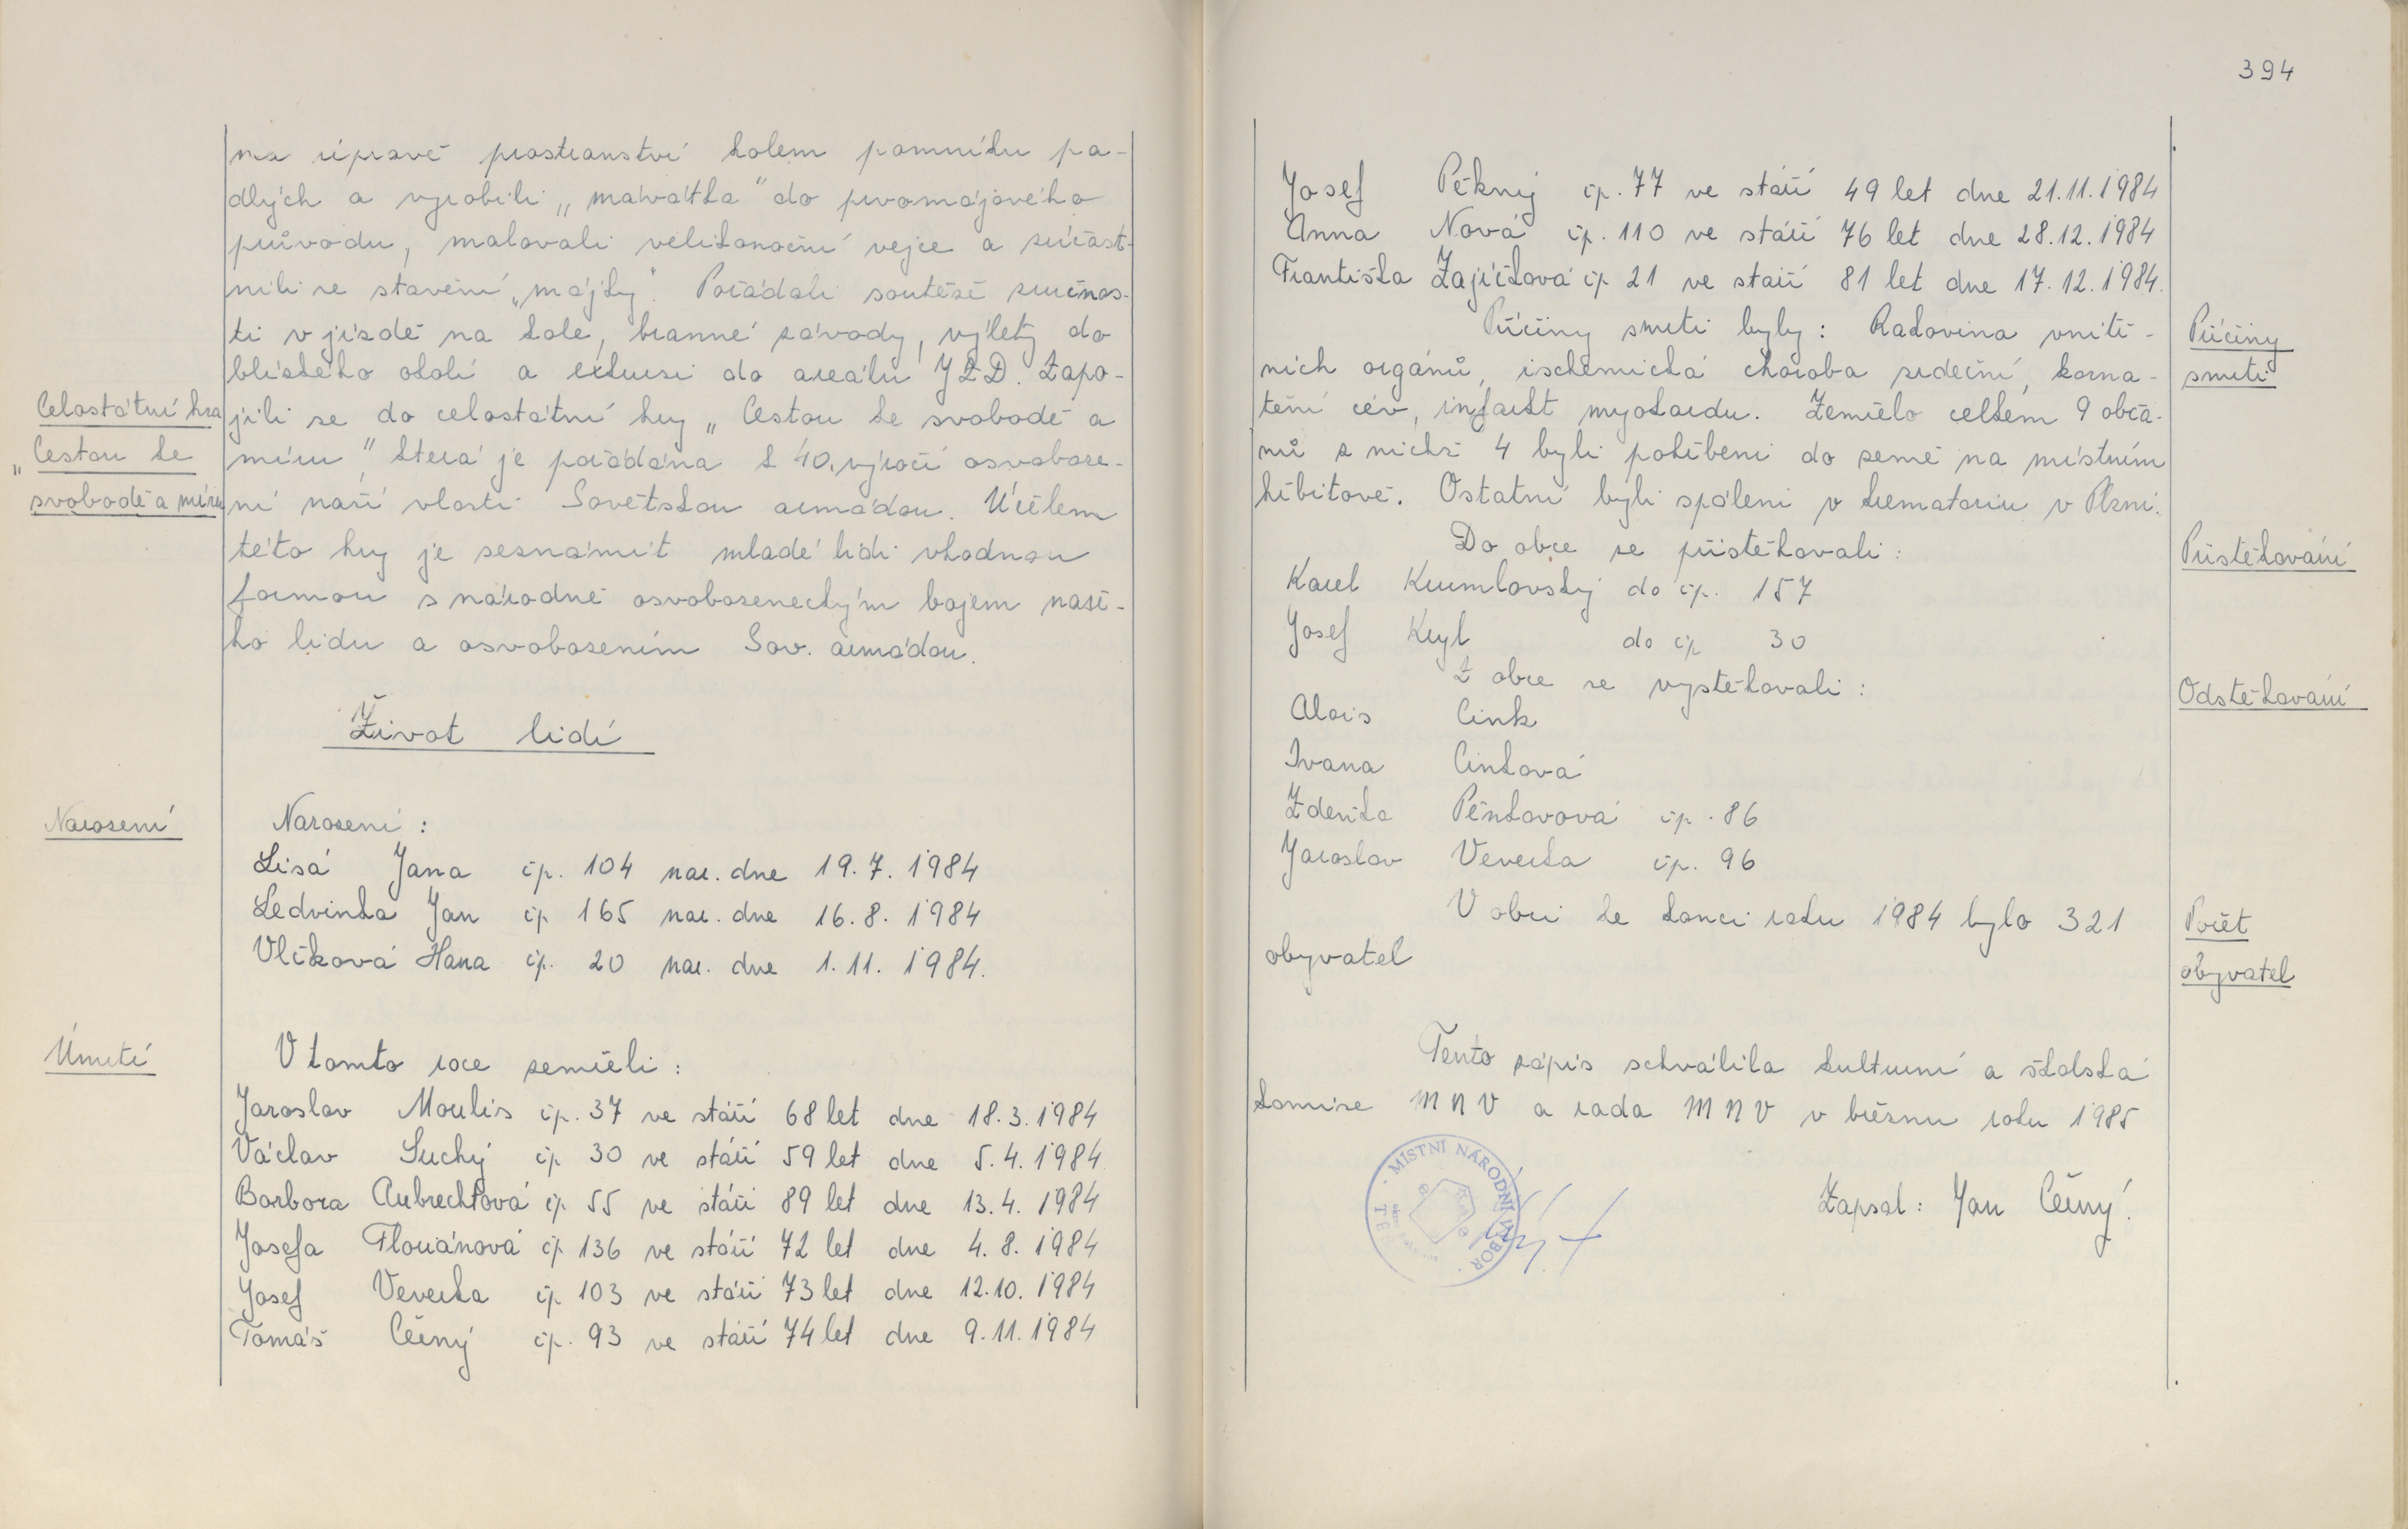 na úpravě prostranství kolem pomníku pa-
dlých a vyrobili „mávátka" do prvomájového
průvodu, malovali velikonoční vejce a zúčast-
nili se stavění „májky". Pořádali soutěže zručnos-
ti v jízdě na kole, branné závody, výlety do
blízkého okolí a exkursi do areálu JZD. Zapo-
Celostátní hra
jili se do celostátní hry „Cestou ke svobodě a
„Cestou ke
míru", která je pořádána k 40. výročí osvoboze-
svobodě a míru
ní naší vlasti Sovětskou armádou. Účelem
této hry je seznámit mladé lidi vhodnou
formou s národně osvobozeneckým bojem naše-
ho lidu a osvobozením Sov. armádou.
Život lidí
Narození
Narození :
Lisá Jana čp. 104 nar. dne 19. 7. 1984
Ledvinka Jan čp 165 nar. dne 16. 8. 1984
Vlčková Hana čp. 20 nar. dne 1. 11. 1984.
Úmrtí
V tomto roce zemřeli :
Jaroslav Moulis čp. 37 ve stáří 68 let dne 18. 3. 1984
Václav Suchý čp 30 ve stáří 59 let dne 5. 4. 1984
Barbora Aubrechtová čp. 55 ve stáří 89 let dne 13. 4. 1984
Josefa Floriánová čp 136 ve stáří 72 let dne 4. 8. 1984
Josef Veverka čp 103 ve stáří 73 let dne 12. 10. 1984
Tomáš Černý čp. 93 ve stáří 74 let dne 9. 11. 1984
394
Josef Pěkný čp. 77 ve stáří 49 let dne 21. 11. 1984
Anna Nová čp. 110 ve stáří 76 let dne 28. 12. 1984
Františka Zajíčková čp 21 ve stáří 81 let dne 17. 12. 1984.
Příčiny smrti byly : Rakovina vnitř-
Příčiny
ních orgánů, ischemická choroba srdeční, korna-
smrti
tění cév, infarkt myokardu. Zemřelo celkem 9 obča-
nů z nichž 4 byli pohřbeni do země na místním
hřbitově. Ostatní byli spáleni v krematoriu v Plzni.
Do obce se přistěhovali :
Přistěhování
Karel Krumlovský do čp. 157
Josef Kryl do čp 30
Z obce se vystěhovali :
Odstěhování
Alois Cink
Ivana Cinková
Zdeňka Pěnkavová čp. 86
Jaroslav Veverka čp. 96
V obci ke konci roku 1984 bylo 321
Počet
obyvatel
obyvatel
Tento zápis schválila kulturní a školská
komise MNV a rada MNV v březnu roku 1985
MÍSTNÍ NÁRODNÍ VÝBOR
Zapsal : Jan Černý.